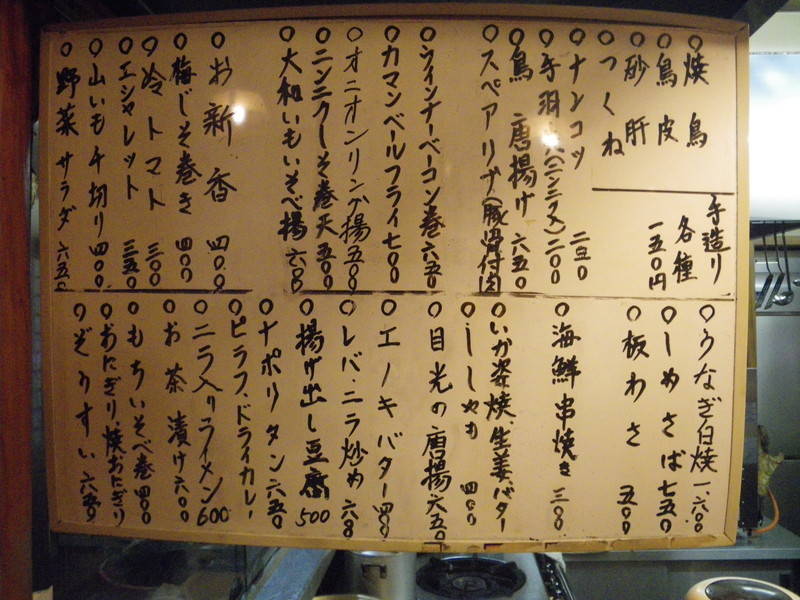 ○焼鳥
○鳥皮
○砂肝
○つくね
手造り
各種
一五〇円
○ナンコツ 二五〇
○手羽 (ニンニク入) 二〇〇
○鳥唐揚げ 六五〇
○スペアリブ(豚骨付肉)
○ウィンナーベーコン巻 六五〇
○カマンベールフライ 七〇〇
○オニオンリング揚 五〇〇
○ニンニクしそ巻天 五〇〇
○大和いもいそべ揚 六〇〇
○お新香 四〇〇
○梅じそ巻き 四〇〇
○冷トマト 三〇〇
○エシャレット 三五〇
○山いも千切り 四〇〇
○野菜サラダ 六五〇
○うなぎ白焼 一、六〇〇
○しめさば 七五〇
○板わさ 五〇〇
○海鮮串焼き 三〇〇
○いか姿焼、生姜、バター
○ししゃも 四〇〇
○目光の唐揚 六五〇
○エノキバター 四〇〇
○レバ、ニラ炒め 六〇〇
○揚げ出し豆腐 500
○ナポリタン 六五〇
○ピラフ、ドライカレー
○ニラ入りラーメン 600
○お茶漬け 六〇〇
○もちいそべ巻 四〇〇
○おにぎり、焼おにぎり
○ぞうすい 六五〇